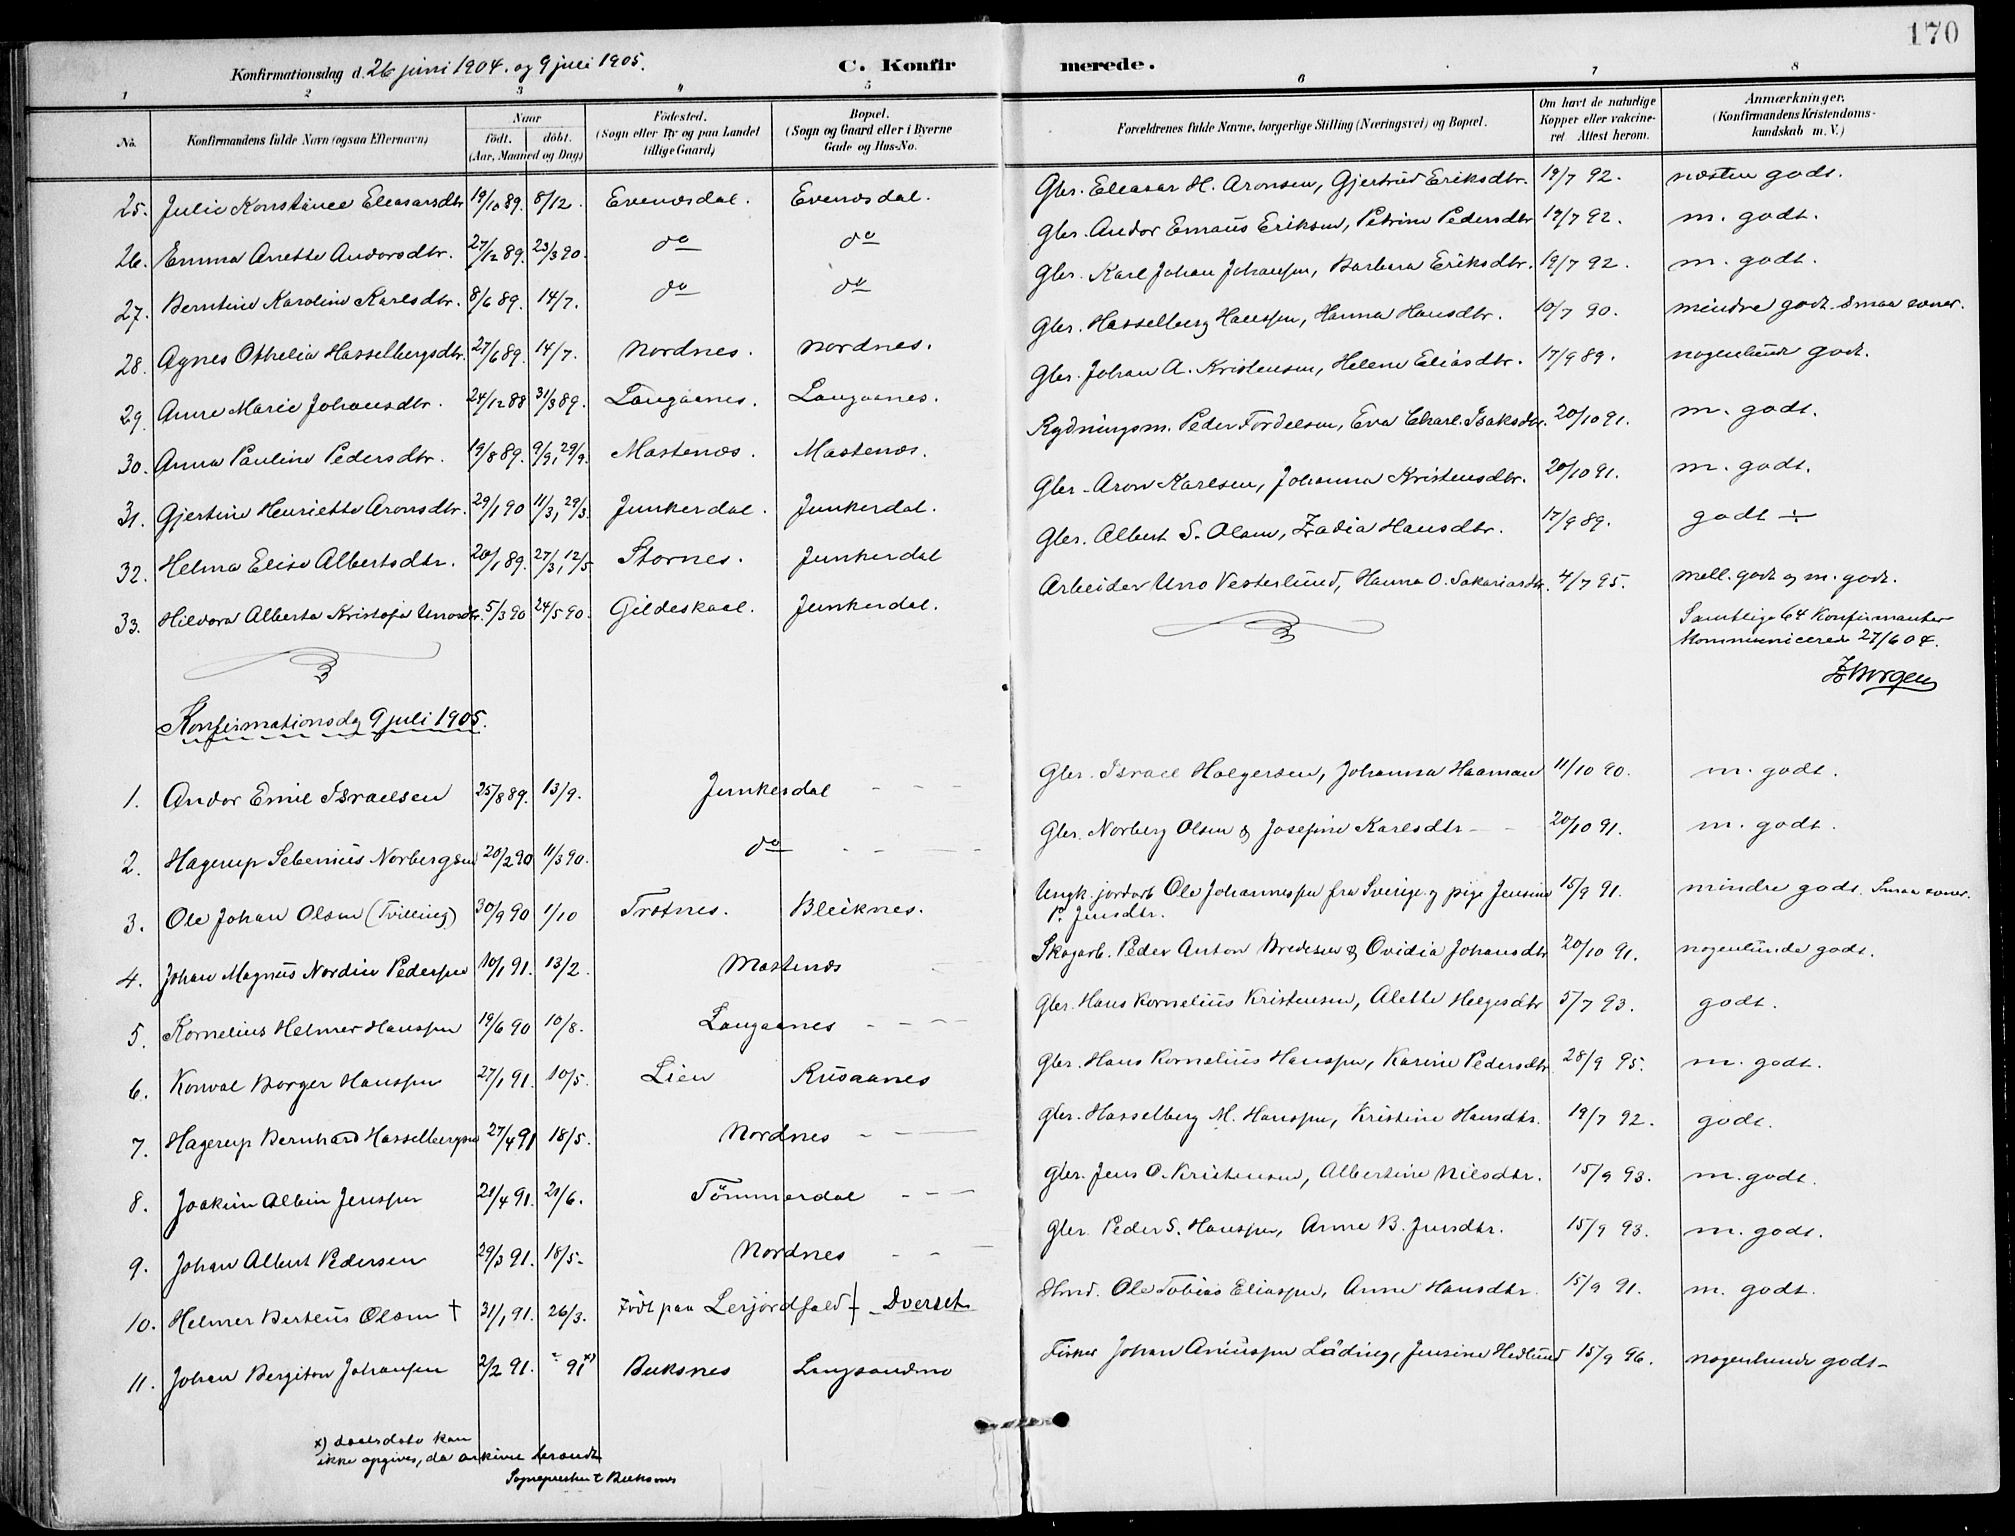 170
Konfirmationsdag d. 26 juni 1904. og 9 juli 1905.
C. Konfirmerede.
1 2 3 4 5 6 7 8
No. Konfirmandens fulde Navn (ogsaa Efternavn) Naar født. døbt. (Aar, Maaned og Dag) Fødested. (Sogn eller By og paa Landet tillige Gaard) Bopæl. (Sogn og Gaard eller i Byerne Gade og Hus-No. Forældrenes fulde Navne, borgerlige Stilling (Næringsvei) og Bopæl. Om havt de naturlige Kopper eller vakcineret Attest herom. Anmærkninger. (Konfirmandens Kristendomskundskab m. V.)
25. Julie Konstance Eleasarsdtr 19/10 89. 8/12. Evenesdal. Evenesdal. Gbr. Eleasar H. Aronsen, Gjertrud Eriksdtr. 19/7 92. næsten godt.
26. Emma Anette Andorsdtr. 27/12 89. 23/3 90. do do Gbr. Andor Emaus Eriksen, Petrine Pedersdtr 19/7 92. m. godt.
27. Berntine Karoline Karlsdtr. 8/6 89. 14/7. do do Gbr. Karl Johan Johansen, Barbara Eriksdtr. 19/7 92. m. godt.
28. Agnes Othelia Hasselbergsdtr. 27/6 89. 14/7. Nordnes. Nordnes. Gbr. Hasselberg Hansen, Hanna Hansdtr. 10/7 90. mindre godt. Smaa evner.
29. Anne Marie Johansdtr. 24/12 88 31/3 89. Langaanes. Langaanes. Gbr. Johan A. Kristensen, Helene Eliasdtr. 17/9 89. nogenlunde godt.
30. Anna Pauline Pedersdtr. 19/8 89. 9/9, 29/9. Mastenæs. Mastenæs. Rydningsm. Peder Fordelsen, Eva Charl. Isaksdtr. 20/10 91. m. godt.
31. Gjertine Henriette Aronsdtr. 29/1 90 11/3, 29/3. Junkerdal. Junkerdal. Gbr. Aron Karlsen, Johanna Kristensdtr. 20/10 91. m. godt.
32. Helma Elise Albertsdtr. 20/1 89. 27/3, 12/5 Stornes. Junkerdal Gbr. Albert S. Olsen, Zadia Hansdtr. 17/9 89. godt ÷
33. Hildora Alberta Kristofa Unosdtr. 5/3 90 24/5 90. Gildeskaal. Junkerdal. Arbeider Uno Vesterlund, Hanna O. Sakariasdtr. 4/7 95. mell. godt og m. godt.
Samtlige 64 Konfirmanter
kommunicerede 27/6 04.
Borgen
Konfirmationsdag 9 juli 1905.
1. Andor Emil Israelsen 25/8 89. 13/9. Junkerdal Gbr. Israel Holgersen, Johanna Haaman 11/10 90. m. godt.
2. Hagerup Sebenius Norbergsen 20/2 90 11/3 90. do Gbr. Norberg Olsen & Josefine Karlsdtr 20/10 91. m. godt.
3. Ole Johan Olsen (Tvilling) 30/9 90 1/10 Trotnes. Bleiknes. Ungk. jordarb Ole Johannessen fra Sverige og pige Jensine P. Jensdtr. 15/9 91. mindre godt. Smaa evner.
4. Johan Magnus Nordin Pedersen 10/1 91. 13/2. Mastenæs Skogarb. Peder Anton Bredesen & Ovidia Johansdtr 20/10 91. nogenlunde godt.
5. Kornelius Helmer Hanssen 19/6 90 10/8. Langaanes Gbr. Hans Kornelius Kristensen, Alette Helgesdtr 5/7 93. godt.
6. Konval Borger Hanssen 27/1 91. 10/5. Lien Rusaanes Gbr. Hans Kornelius Hanssen, Karine Pedersdtr. 28/9 95. m. godt.
7. Hagerup Bernhard Hasselbergsen 27/4 91 18/5. Nordnes Gbr. Hasselberg M. Hanssen, Kristine Hansdtr. 19/7 92. godt.
8. Joakim Albin Jenssen 21/4 91. 21/6. Tømmerdal Gbr. Jens O. Kristensen, Albertine Nilsdtr. 15/9 93. m. godt.
9. Johan Albert Pedersen 29/3 91. 18/5. Nordnes Gbr. Peder S. Hanssen, Anne B. Jensdtr. 15/9 93. m. godt.
10. Helmer Berteus Olsen † 31/1 91. 26/3. Født paa Lerjordfald † Dverset Hmd. Ole Tobias Eliassen, Anne Hansdtr. 15/9 91. m. godt.
11. Johan Bergiton Johansen 2/2 91. 91 x) Buksnes Langsandmo Fisker Johan Ariussen Läding, Jensine Hedlund 15/9 96. nogenlunde godt
x) daabsdato kan
ikke opgives, da arkivet brændt
Sognepresten t Buksnes